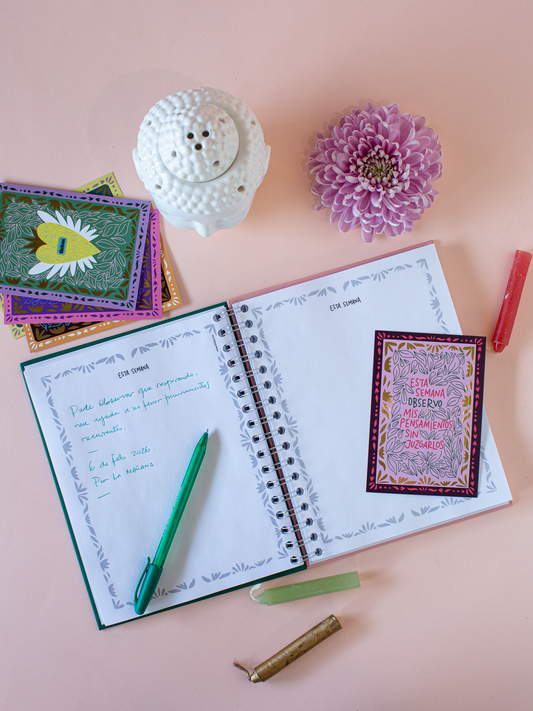 ESTA SEMANA
Pude observar que respirando,
me ayuda a no tener pensamientos
recurrentes.
6 de feb 2026
Por la mañana
ESTA SEMANA
ESTA
SEMANA
OBSERVO
MIS
PENSAMIENTOS
SIN
JUZGARLOS